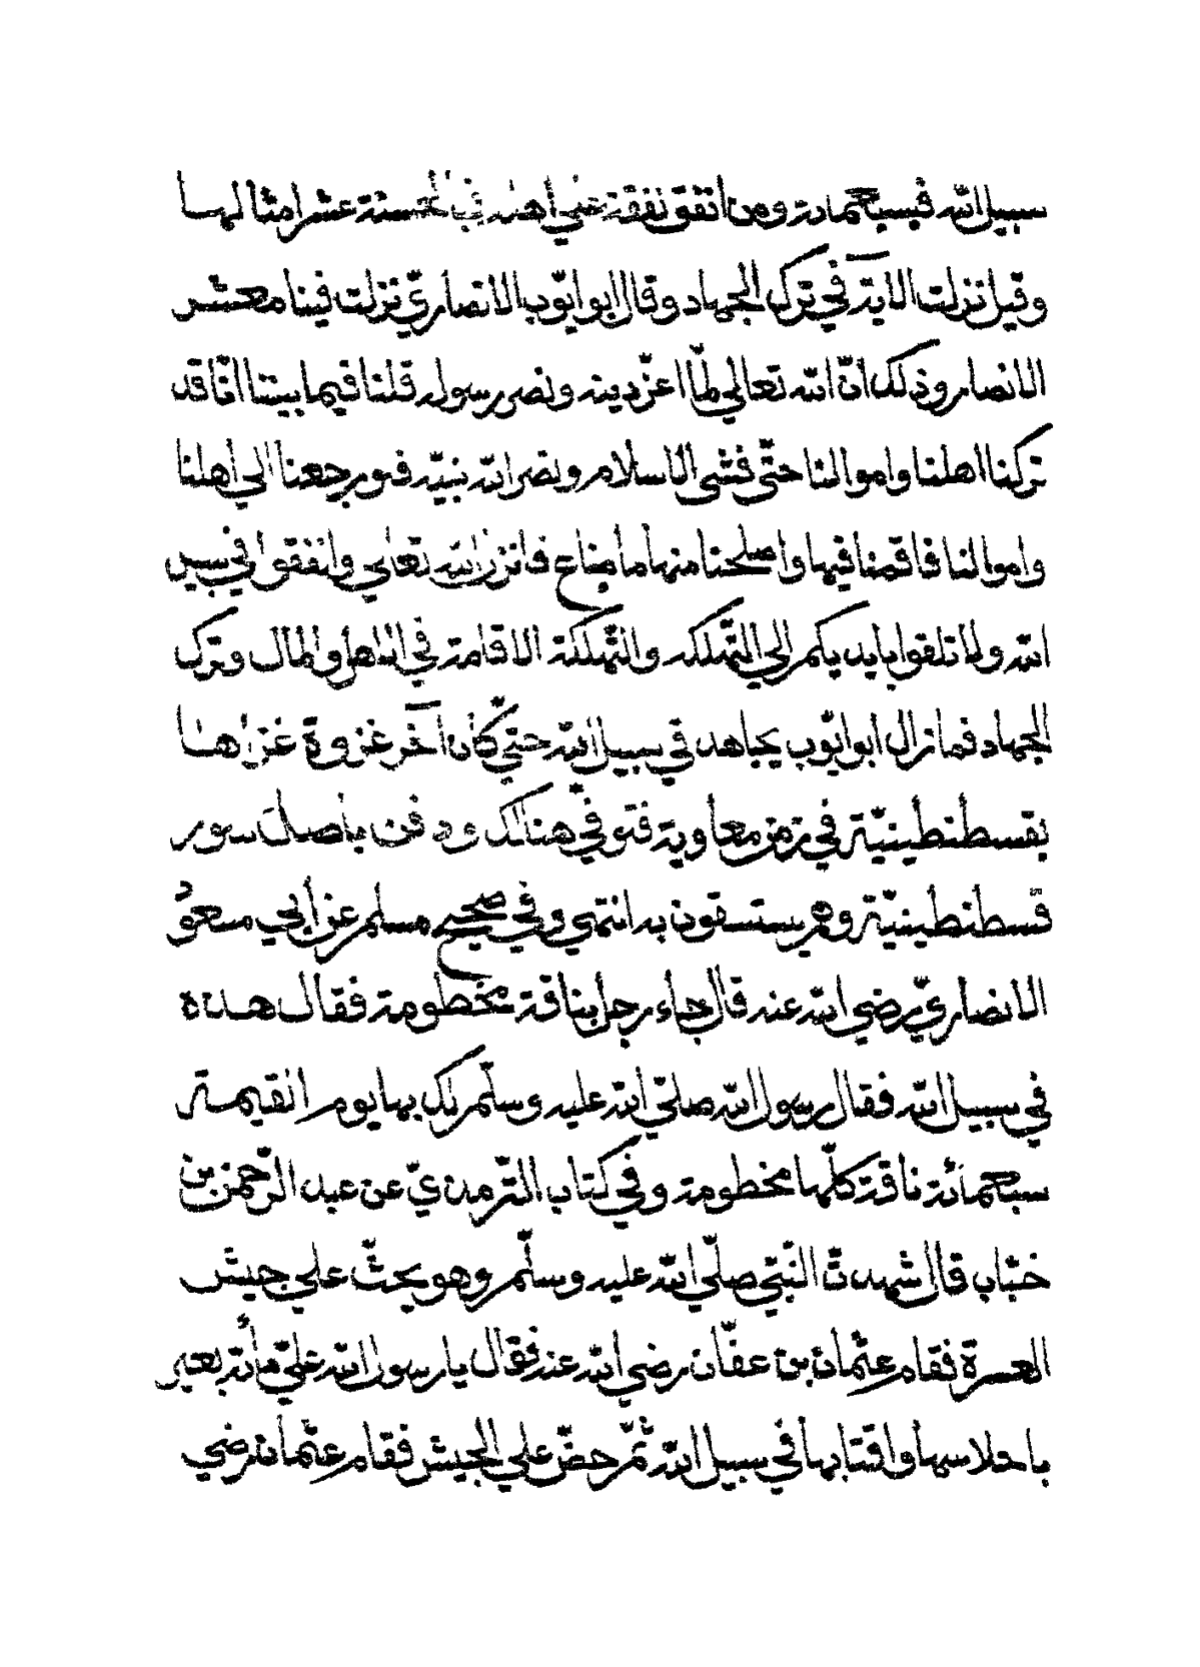 سبيل الله فبسبعمادة ومن انفق نفقة علي أهله فبالحسنة عشر امثالها
وقيل نزلت الاية في ترك الجهاد وقال ابو ايّوب الانصاريّ نزلت فينا معشر
الانصار وذلك انّ الله تعالي لمّا اعزّ دينه ونصر رسوله قلنا فيما بيننا انّا قد
تركنا اهلنا واموالنا حتّي فشي الاسلام ونصر الله نبيّه فلو رجعنا الي أهلنا
واموالنا فاقمنا فيها واصلحنا منها ما ضاع فانزل الله تعالي وانفقوا في سبيل
الله ولا تلقوا بايديكم الي التّهلكه والتّهلكة الاقامة في الاهل والمال وترك
الجهاد فما زال ابو ايّوب يجاهد في سبيل الله حتّي كان آخر غزوة غزاها
بقسطنطينيّة في زمن معاوية فتوفّي هنالك ودفن باصل سور
قسطنطينيّة وهم يستسقون به انتهي وفي صحيح مسلم عن أبي مسعود
الانصاريّ رضي الله عنه قال جاء رجل بناقة مخطومة فقال هذه
في سبيل الله فقال رسول الله صلّي الله عليه وسلّم لك بها يوم القيمة
سبعمائة ناقة كلّها مخطومة وفي كتاب التّرمذيّ عن عبد الرّحمن بن
خبّاب قال شهدتّ النّبيّ صلّي الله عليه وسلّم وهو يحثّ علي جيش
العسرة فقام عثمان بن عفّان رضي الله عنه فقال يا رسول الله عليّ مأئة بعير
باحلاسها واقتابها في سبيل الله ثمّ حضّ علي الجيش فقام عثمان رضي